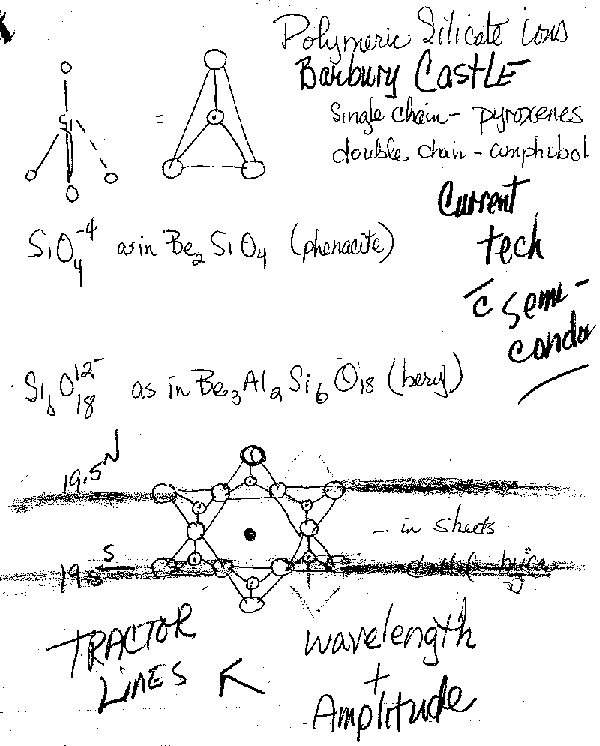 Polymeric Silicate ions
Barbury Castle
Single chain - pyroxenes
double chain - amphibol
Current
tech
c̄ semi-
condo
Si
=
SiO₄⁻⁴ as in Be₂SiO₄ (phenacite)
Si₆O₁₈¹²⁻ as in Be₃Al₂Si₆O₁₈ (beryl)
19.5 N
- in sheets
19.5 S
TRACTOR
LINES
wavelength
+
Amplitude